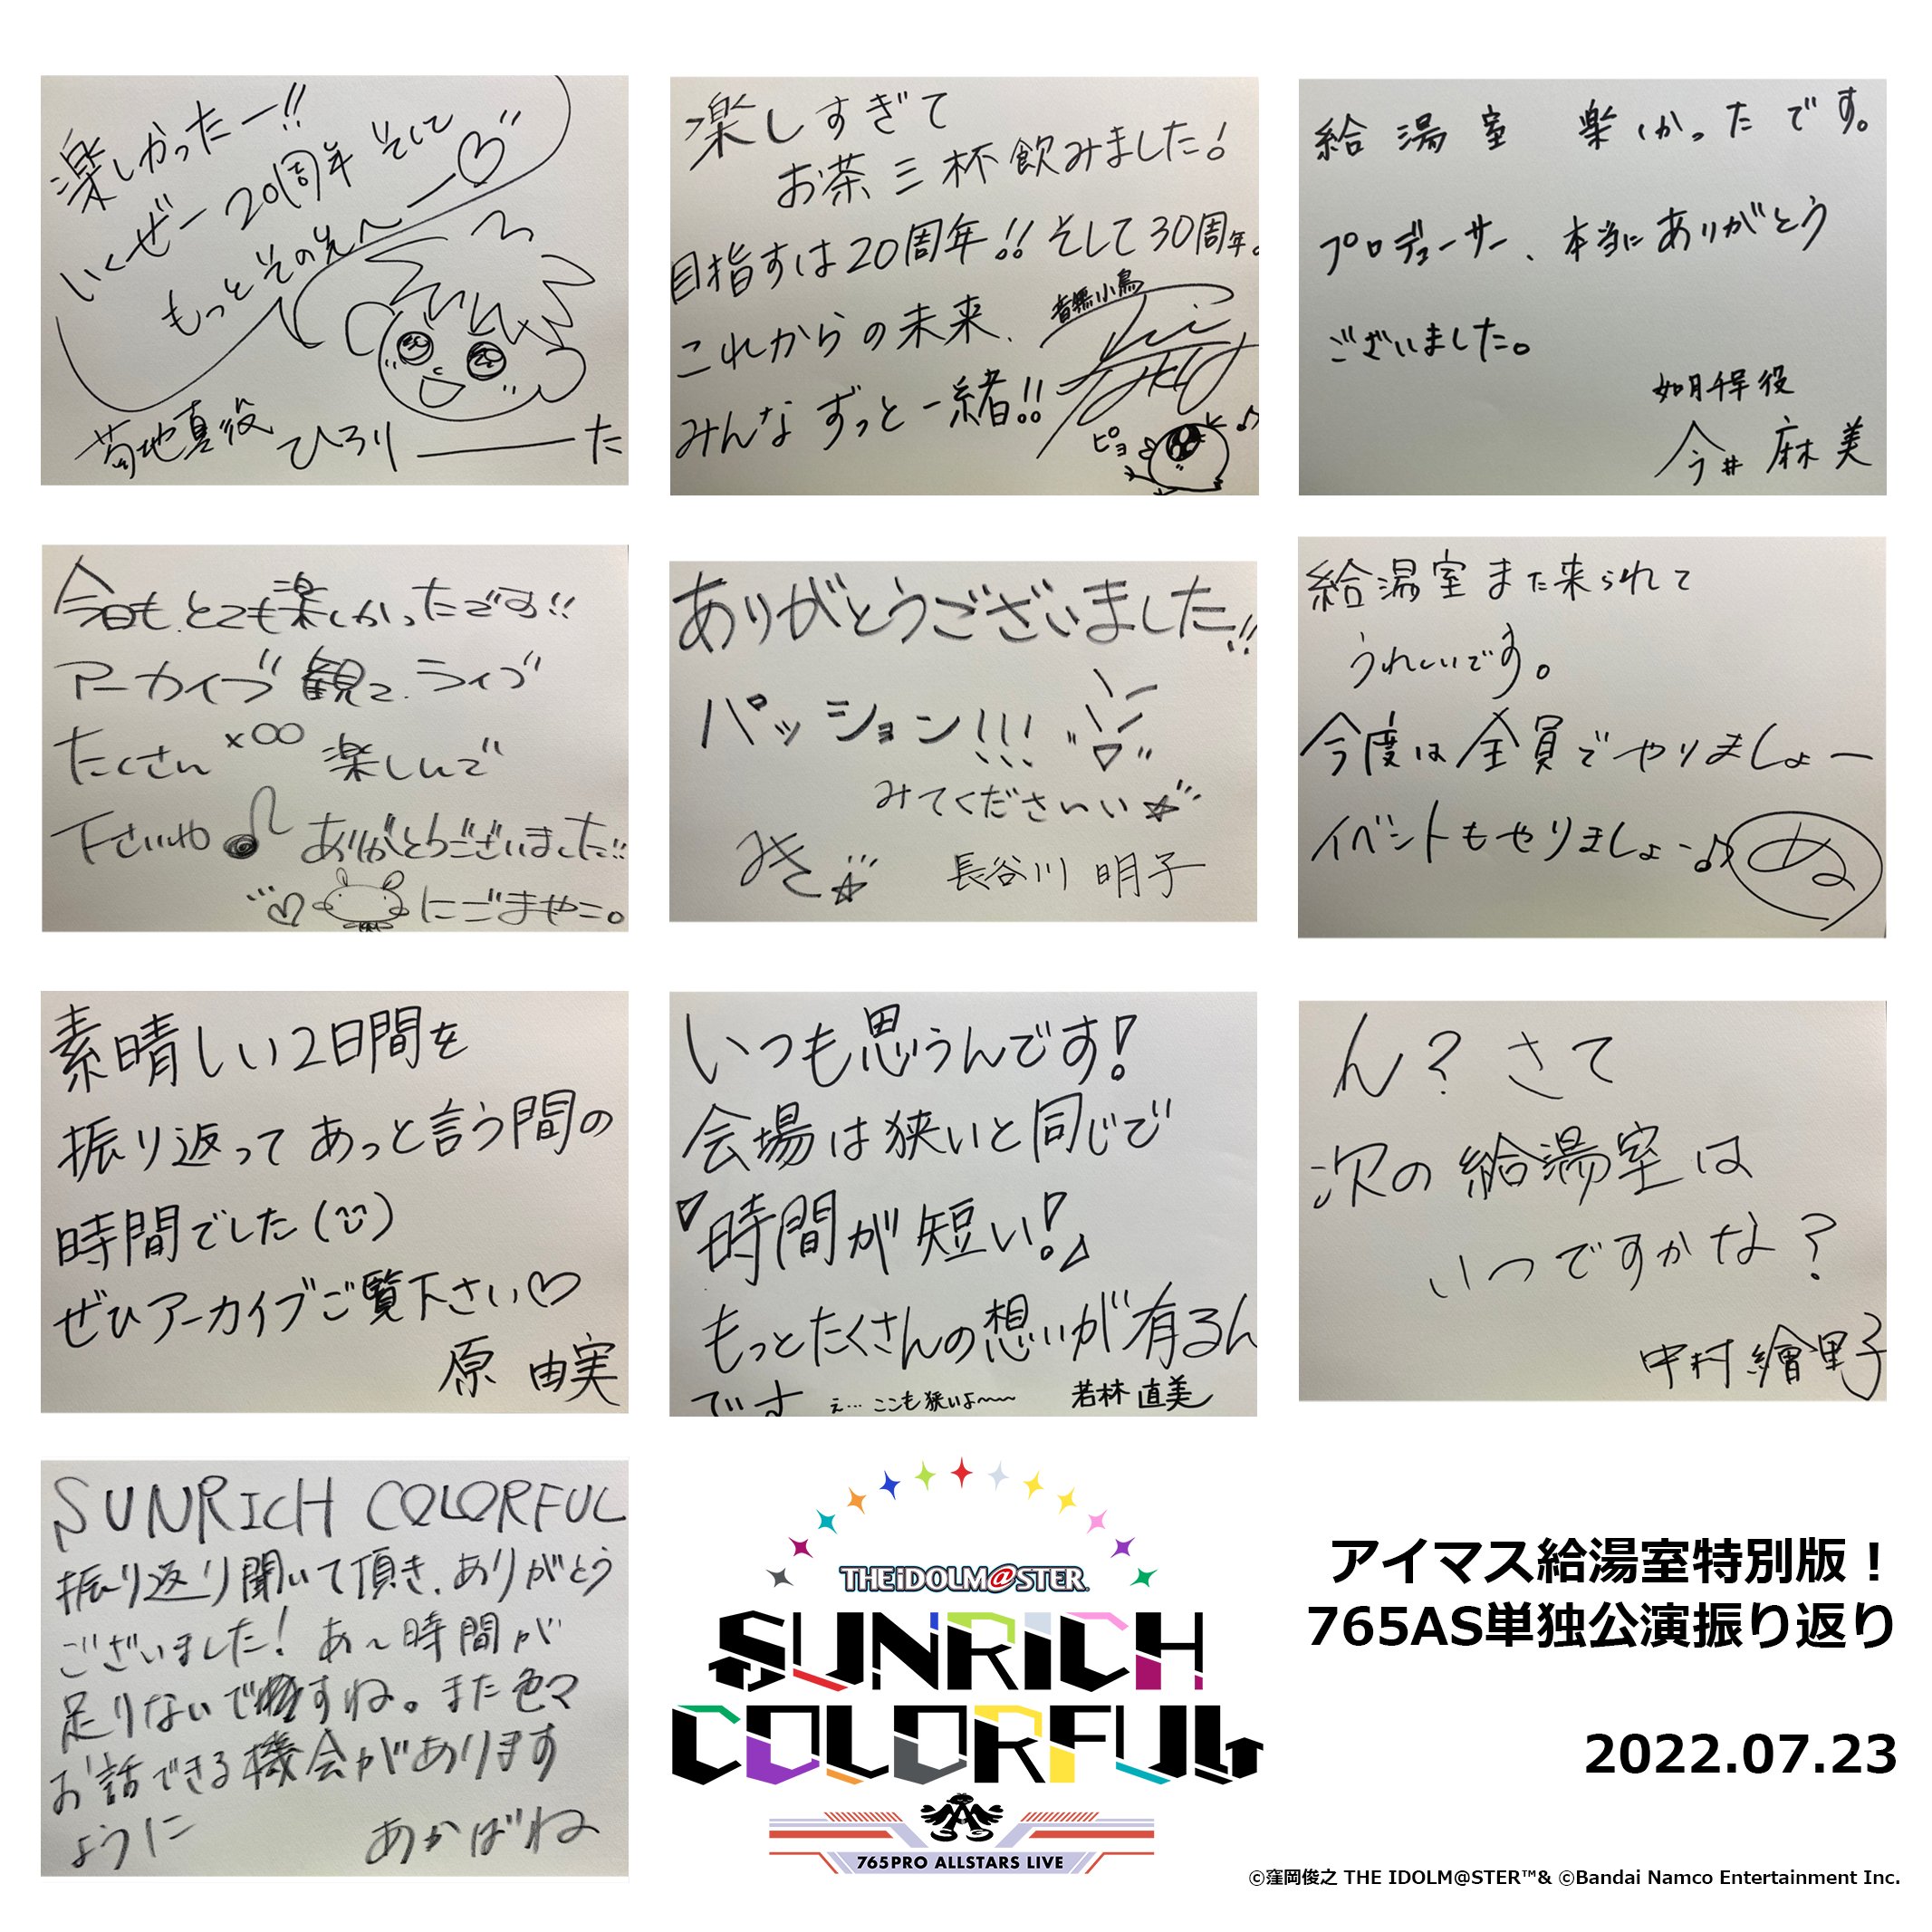 楽しかったー!!
いくぜー20周年 そして
もっとその先へー♡
菊地真役 ひろりーた
楽しすぎて
お茶三杯飲みました!
目指すは20周年!! そして30周年。
これからの未来、
みんなずっと一緒!!
音無小鳥
ピヨ
給湯室 楽しかったです。
プロデューサー、本当にありがとう
ございました。
如月千早役
今井麻美
今日も、とても楽しかったです!!
アーカイブ観て、ライブ
たくさん×∞ 楽しんで
下さいや♪ ありがとうございました!!
♡ にごまやこ。
ありがとうございました!!
パッション!!!
みてくださいい☆
みき☆
長谷川 明子
給湯室また来られて
うれしいです。
今度は全員でやりましょー
イベントもやりましょー♪ ぬ
素晴しい2日間を
振り返って あっと言う間の
時間でした(^^)
ぜひアーカイブご覧下さい♡
原 由実
いつも思うんです!
会場は狭いと同じで
『時間が短い!』
もっとたくさんの想いが有るん
です ぇ…ここも狭いよ〜〜 若林 直美
ん?さて
次の給湯室は
いつですかな?
中村 繪里子
SUNRICH COLORFUL
振り返り聞いて頂き、ありがとう
ございました! あ〜時間が
足りないですね。また色々
お話できる機会があります
ように あかばね
THE iDOLM@STER
SUNRICH
COLORFUL
765PRO ALLSTARS LIVE
アイマス給湯室特別版！
765AS単独公演振り返り
2022.07.23
©窪岡俊之 THE IDOLM@STER™& ©Bandai Namco Entertainment Inc.